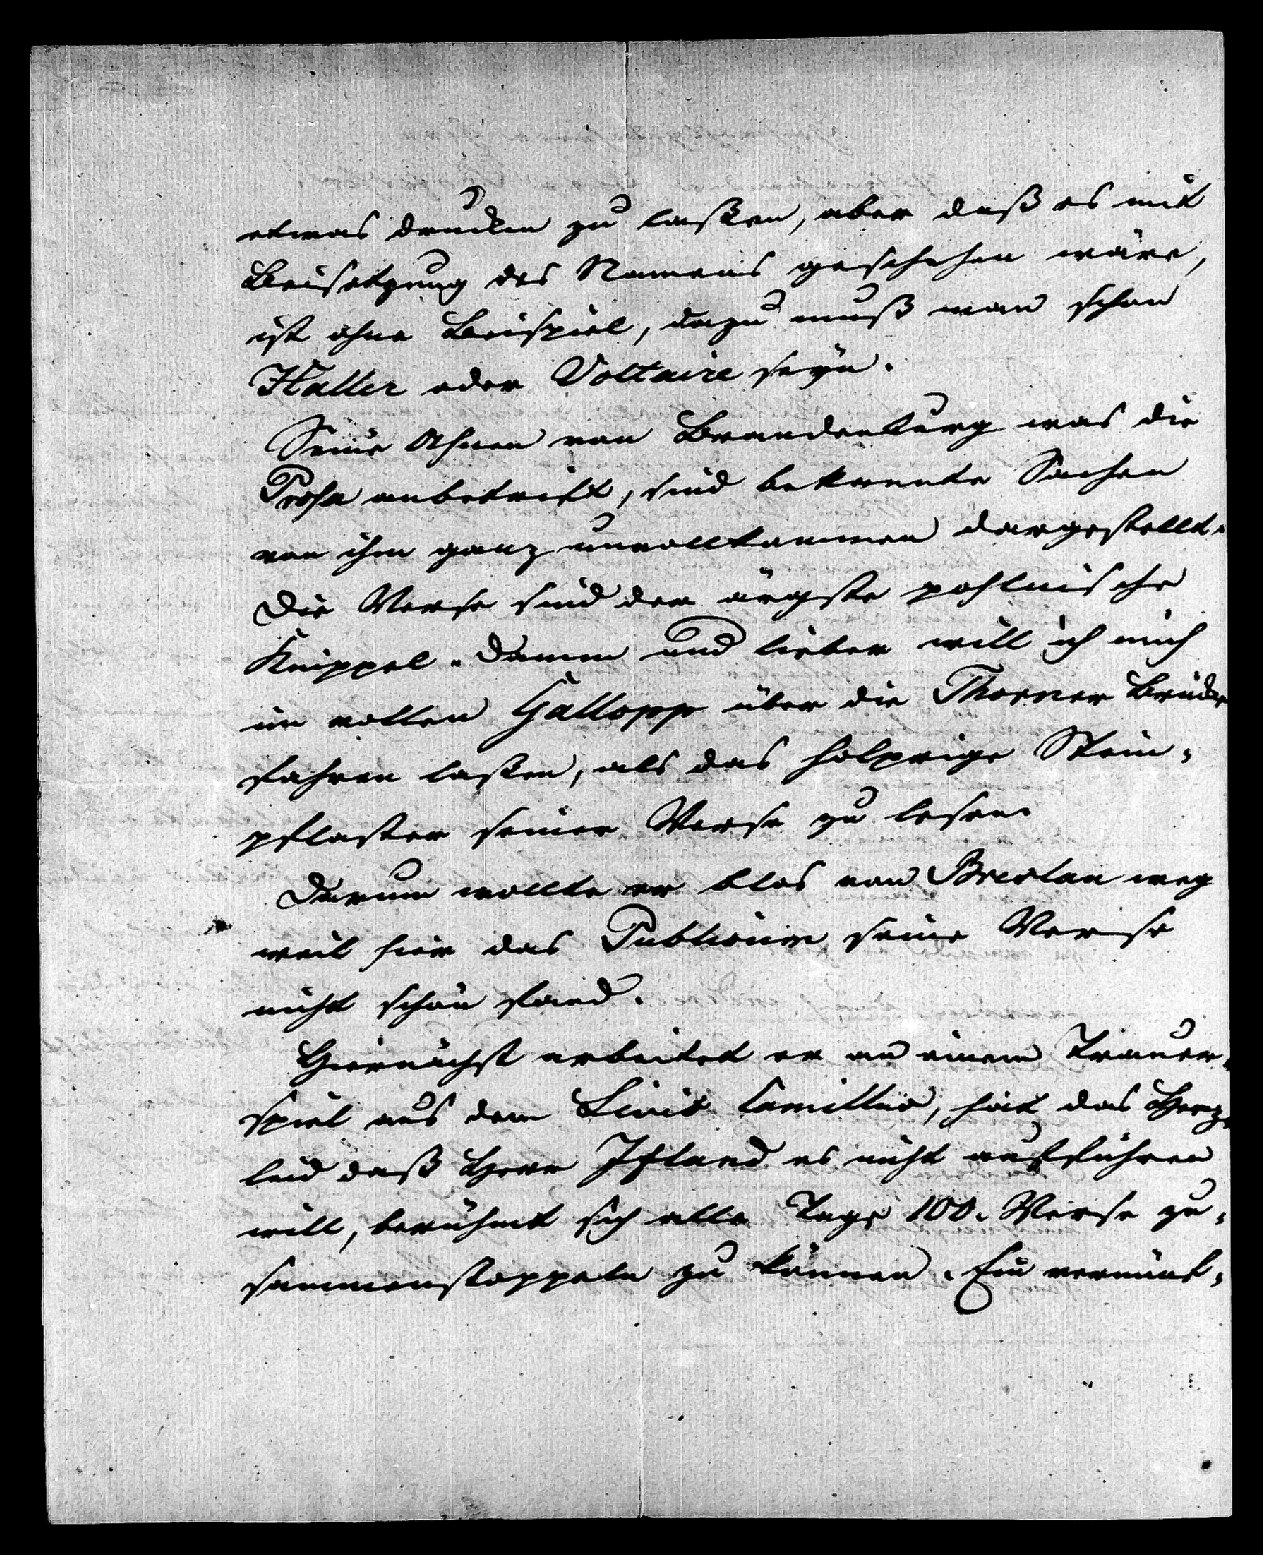 etwas drucken zu laßen, aber daß es mit
Beisetzung des Namens geschehen wäre,
ist ohne Beispiel, dazu muß man schon
Haller oder Voltaire seyn.
Seine Ahnen von Brandenburg was die
Prosa anbetrift, sind bekannte Sachen
von ihm ganz unvollkommen dargestellt.
Die Verse sind der ärgste pohlnische
Knippel-Damm und lieber will ich mich
im vollen Gallopp über die Thorner Brücke
fahren laßen, als das holprige Stein-
pflaster seiner Verse zu lesen.
Darum wollte er blos von Breslau weg
weil hier das Publicum seine Verse
nicht schön fand.
Hiernächst arbeitet er an einem Trauer-
spiel aus dem Livio Camillus, hat das Herze-
leid daß Herr Ifland es nicht aufführen
will, berühmt sich alle Tage 100. Verse zu-
sammenstoppeln zu können. Ein vernünf-